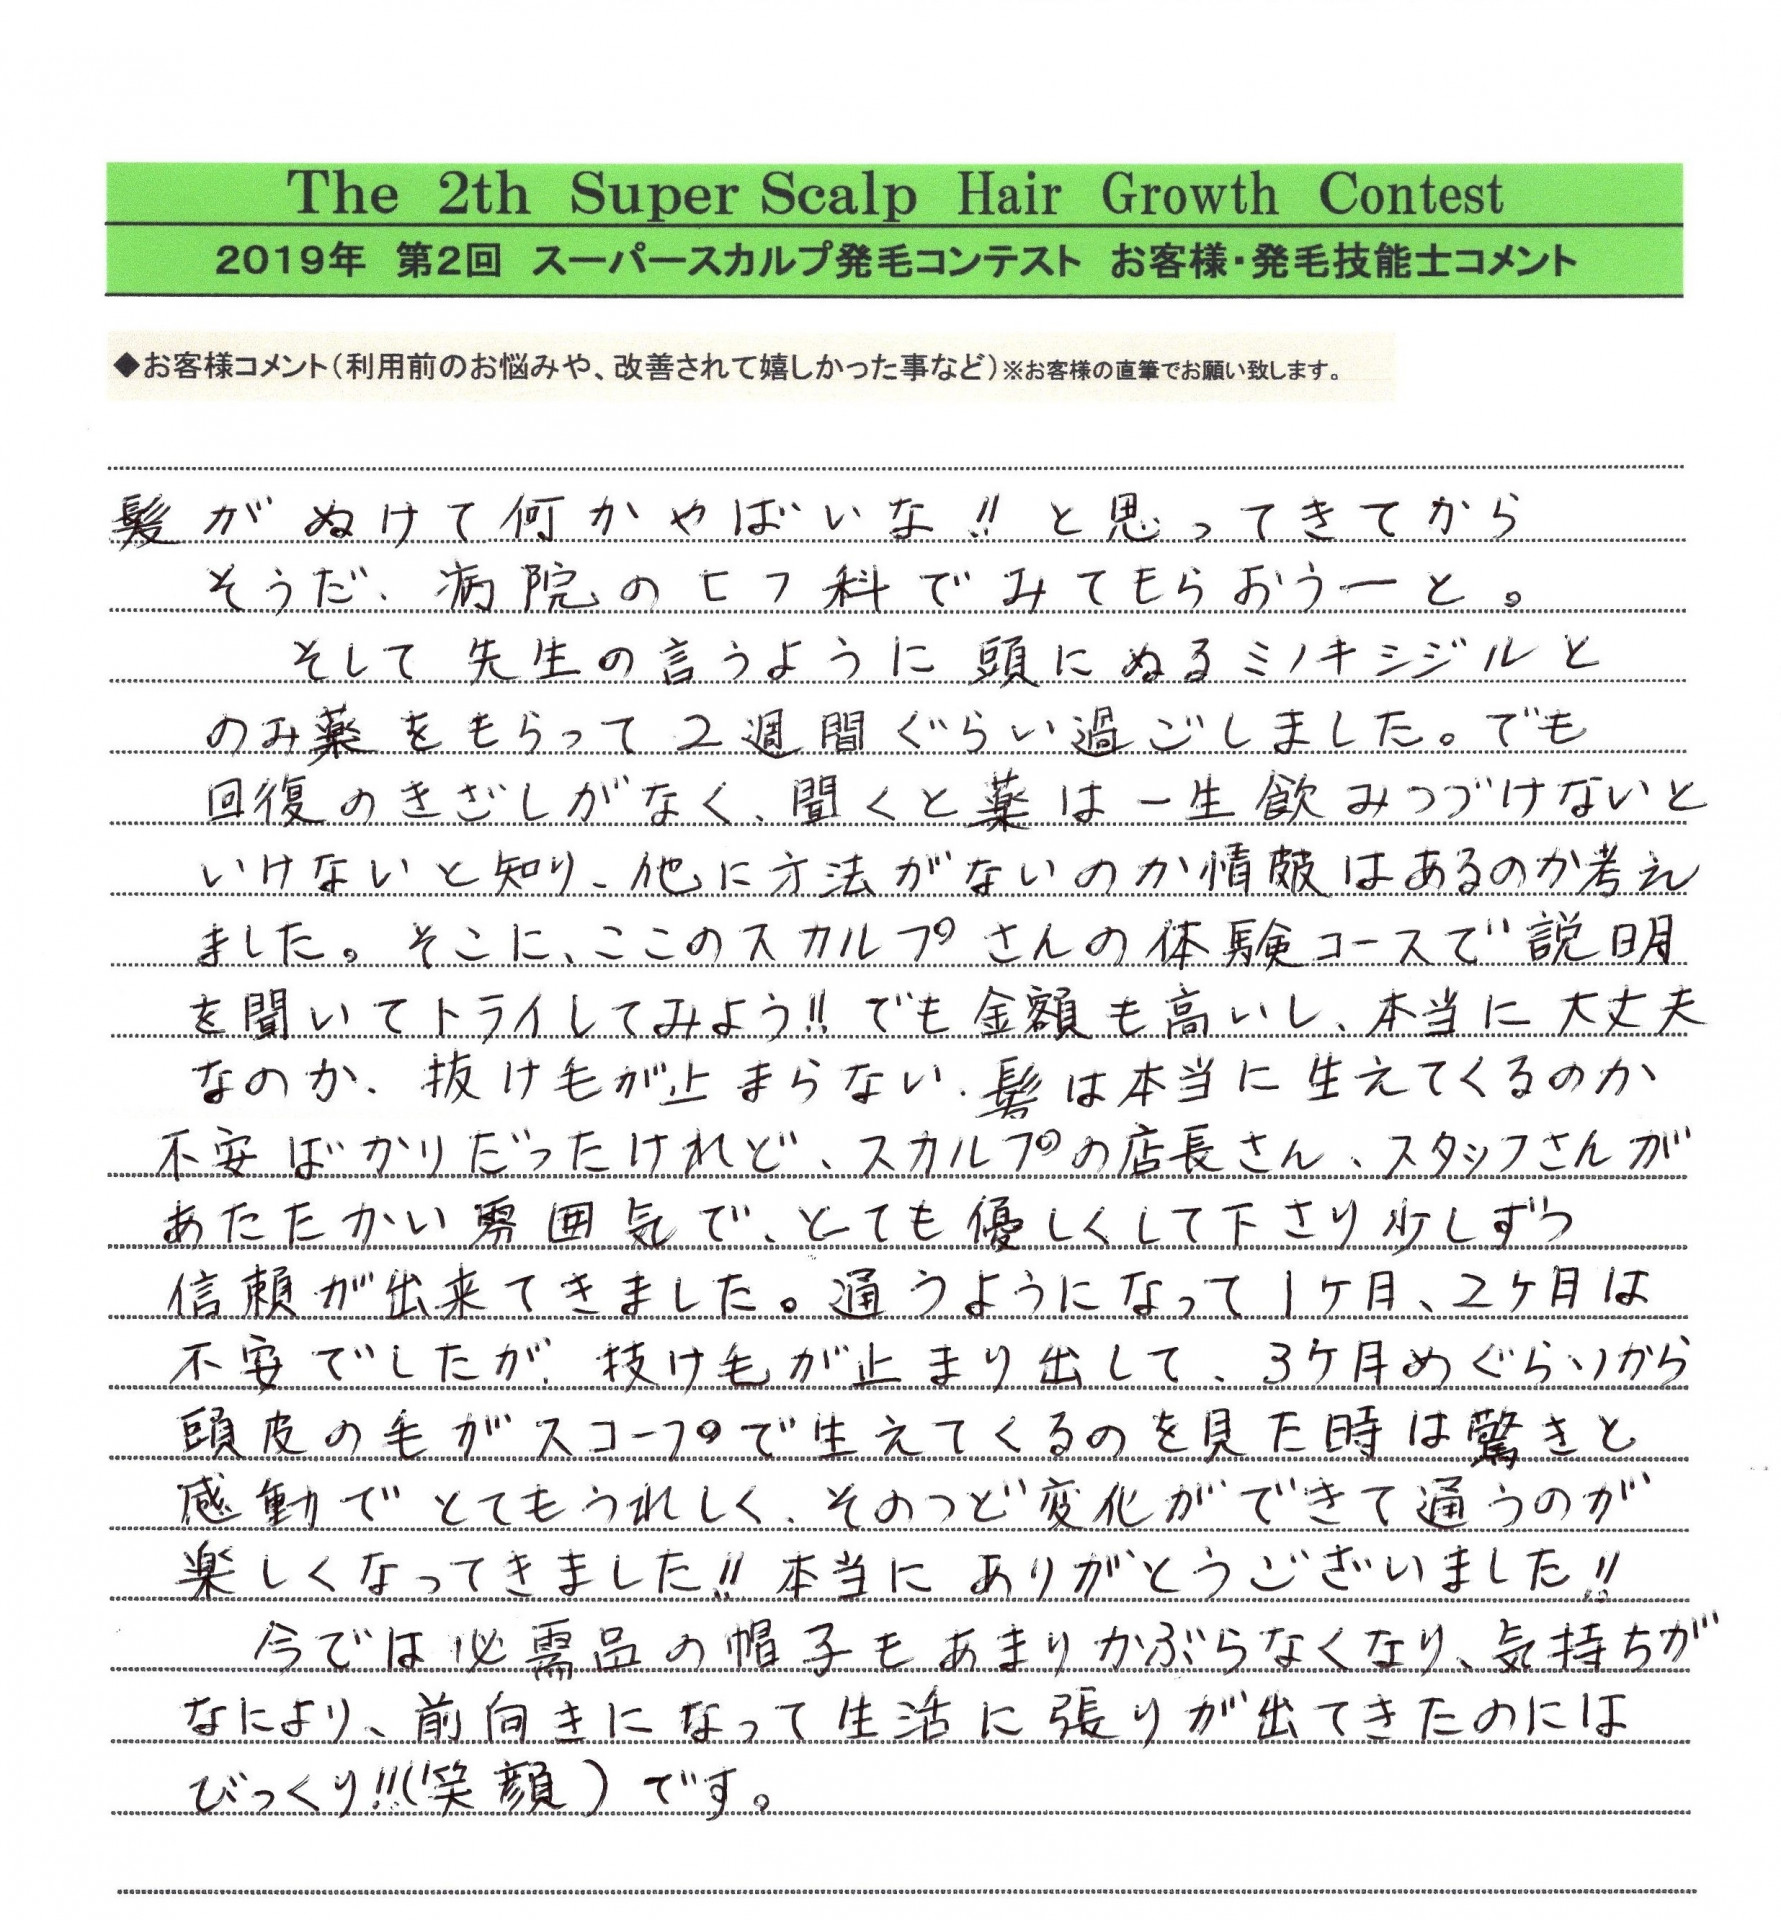 The 2th Super Scalp Hair Growth Contest
2019年 第2回 スーパースカルプ発毛コンテスト お客様・発毛技能士コメント
◆お客様コメント(利用前のお悩みや、改善されて嬉しかった事など)※お客様の直筆でお願い致します。
髪がぬけて何かやばいな!!と思ってきてから
そうだ、病院のヒフ科でみてもらおうーと。
そして先生の言うように頭にぬるミノキシジルと
のみ薬をもらって2週間ぐらい過ごしました。でも
回復のきざしがなく、聞くと薬は一生飲みつづけないと
いけないと知り、他に方法がないのか情報はあるのか考え
ました。そこに、ここのスカルプさんの体験コースで説明
を聞いてトライしてみよう!!でも金額も高いし、本当に大丈夫
なのか、抜け毛が止まらない、髪は本当に生えてくるのか
不安ばかりだったけれど、スカルプの店長さん、スタッフさんが
あたたかい雰囲気で、とても優しくして下さり少しずつ
信頼が出来てきました。通うようになって1ケ月、2ケ月は
不安でしたが、抜け毛が止まり出して、3ケ月めぐらいから
頭皮の毛がスコープで生えてくるのを見た時は驚きと
感動でとてもうれしく、そのつど変化ができて通うのが
楽しくなってきました!!本当にありがとうございました!!
今では必需品の帽子もあまりかぶらなくなり、気持ちが
なにより、前向きになって生活に張りが出てきたのには
びっくり!!(笑顔)です。